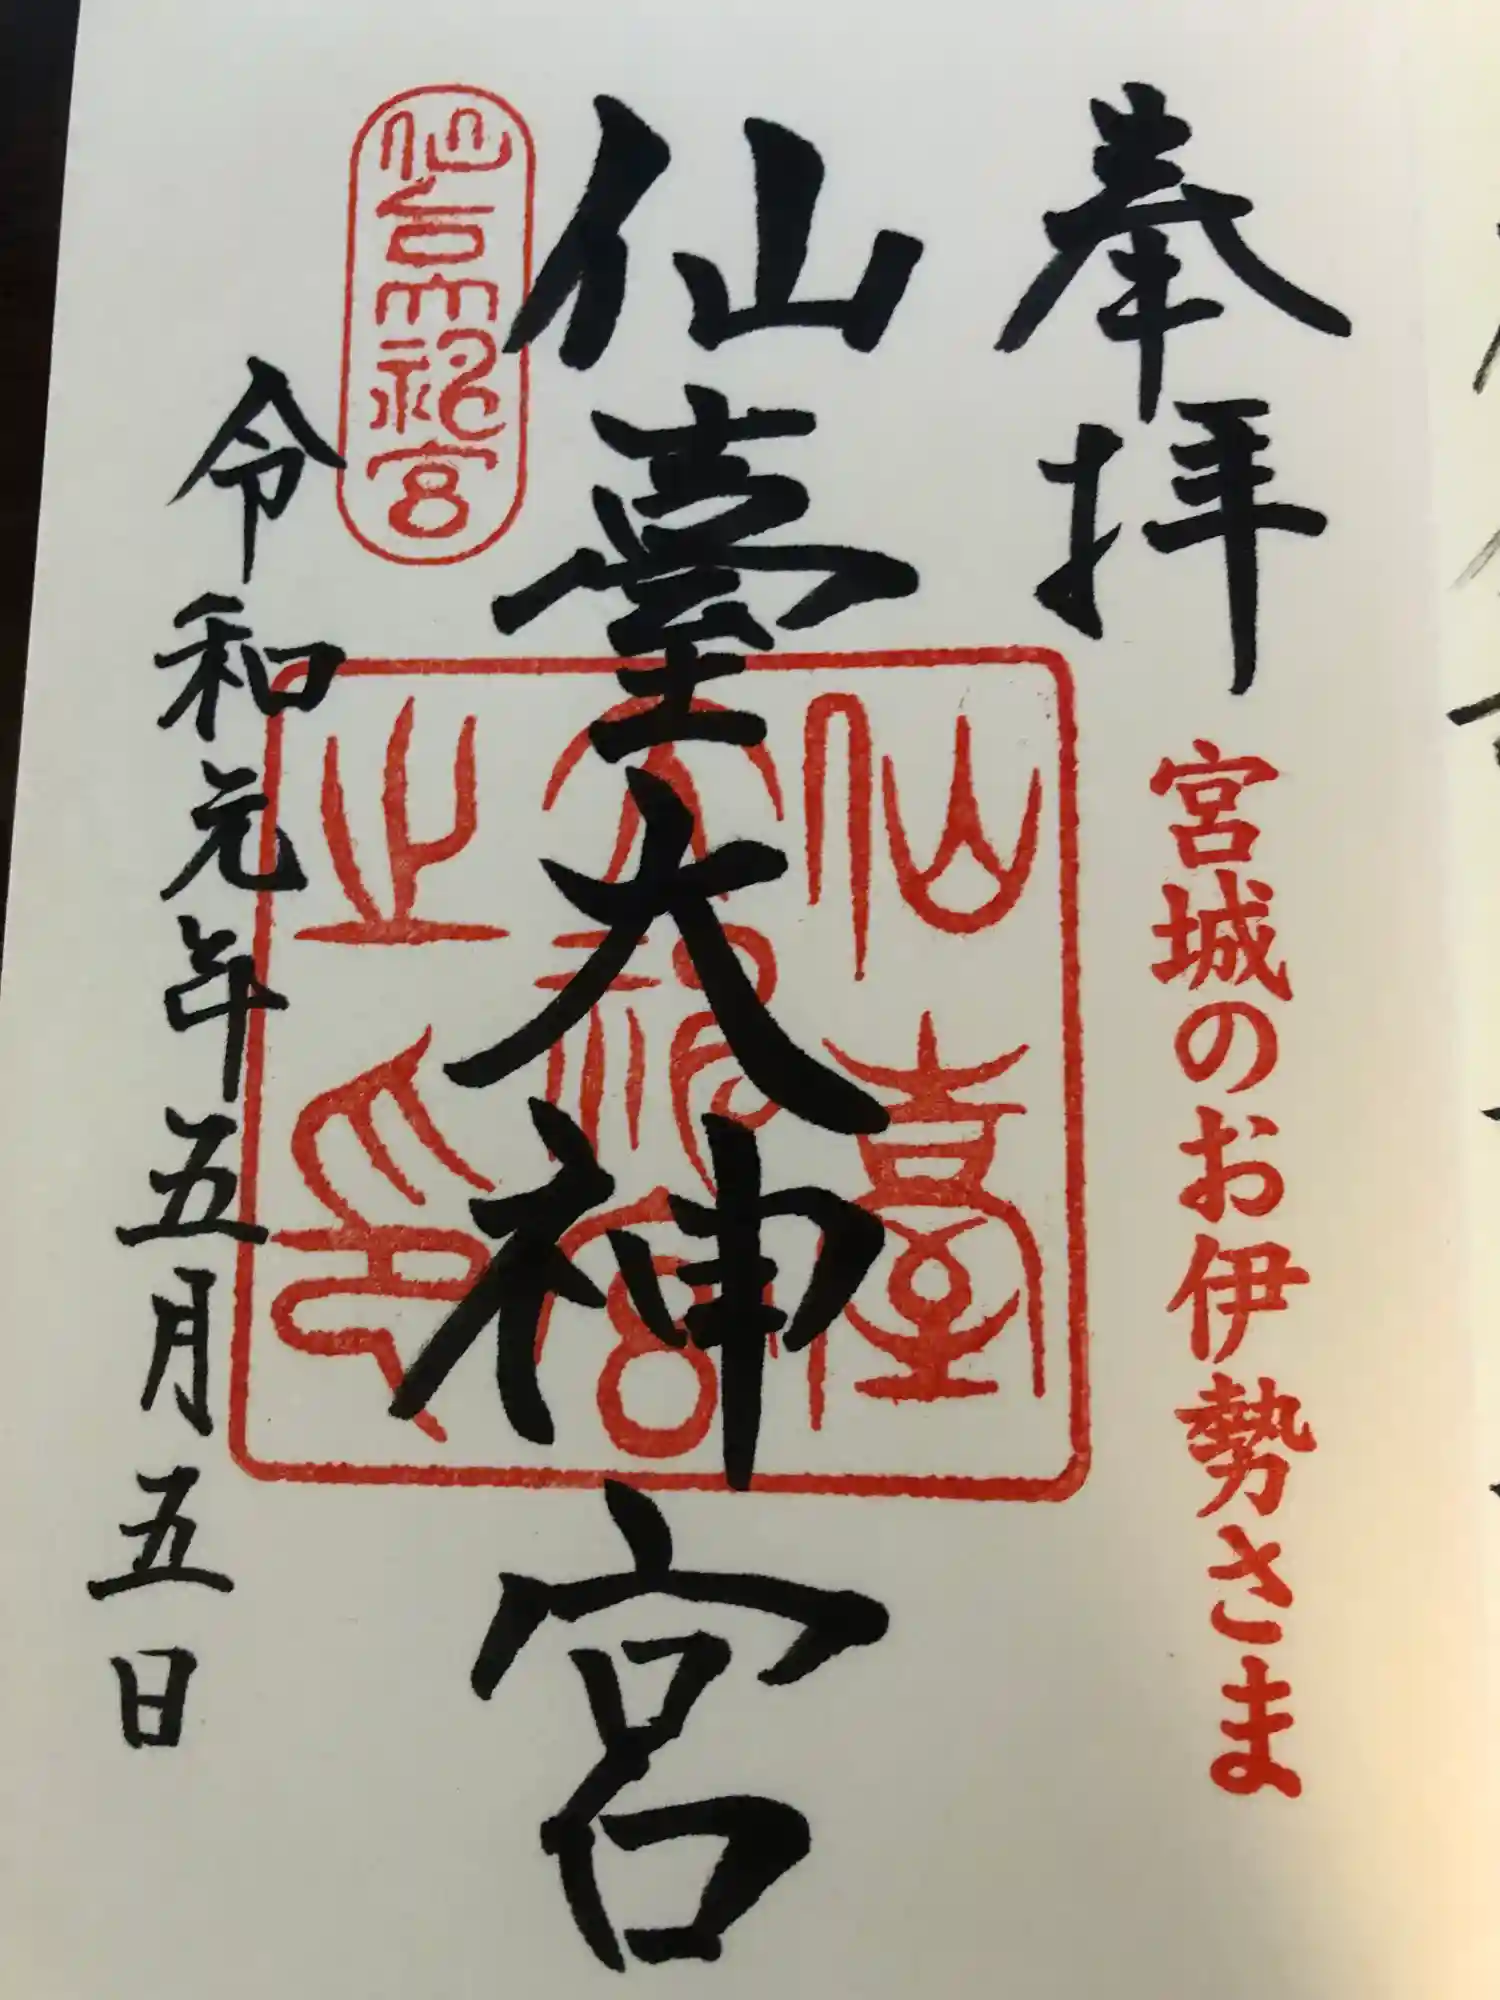 奉拝
宮城のお伊勢さま
仙臺大神宮
仙台大神宮
仙臺大神宮之印
令和元年五月五日